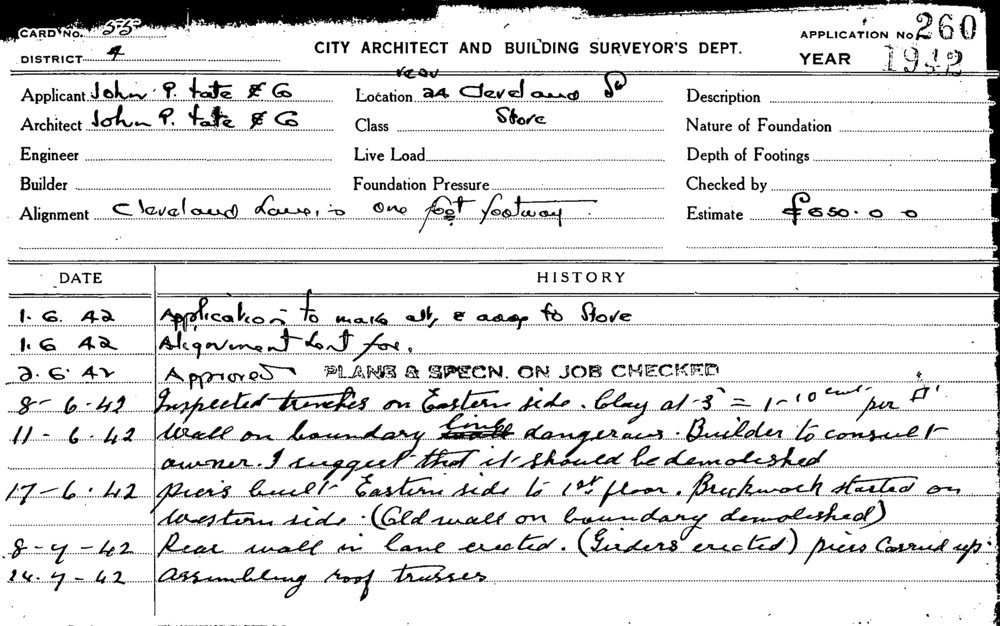 CARD NO. 55
APPLICATION No. 260
DISTRICT 4
CITY ARCHITECT AND BUILDING SURVEYOR'S DEPT.
YEAR 1942
Applicant John P. Tate & Co
rear
Location 24 Cleveland St
Description
Architect John P. Tate & Co
Class Store
Nature of Foundation
Engineer
Live Load
Depth of Footings
Builder
Foundation Pressure
Checked by
Alignment Cleveland Lane, is one foot footway.
Estimate £650.0 0
DATE HISTORY
1. 6. 42 Application to make alts & adds to Store
1. 6 42 Alignment sent for.
2. 6. 42 Approved PLANS & SPECN. ON JOB CHECKED
8- 6.42 Inspected trenches on Eastern side. Clay at -3' = 1-10 cwt per □'
11- 6.42 Wall on boundary line dangerous. Builder to consult
owner. I suggest that it should be demolished
17-6.42 Piers built Eastern side to 1st floor. Brickwork started on
Western side. (Old wall on boundary demolished)
8-7-42 Rear wall in lane erected. (Girders erected) piers carried up.
24.7-42 Assembling roof trusses